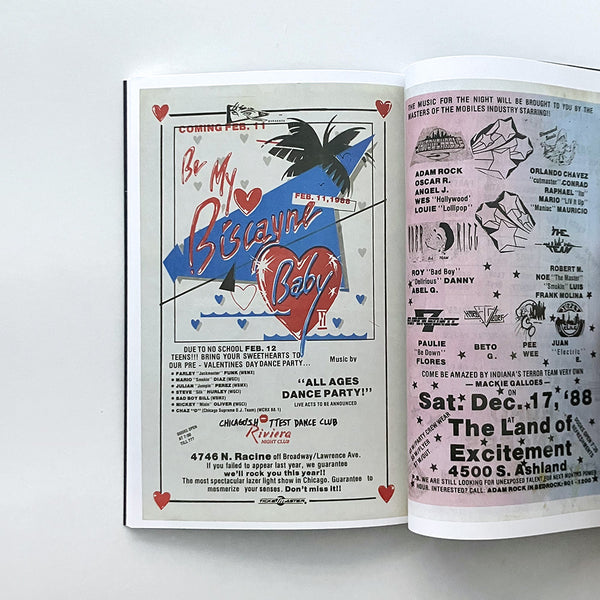 COMING FEB. 11
Be
My
Biscayne
FEB. 11, 1988
Baby
II
DUE TO NO SCHOOL FEB. 12
TEENS!!! BRING YOUR SWEETHEARTS TO
OUR PRE - VALENTINES DAY DANCE PARTY...
• FARLEY "Jackmaster" FUNK (WBMX)
• MARIO "Smokin" DIAZ (WGCI)
• JULIAN "Jumpin" PEREZ (WBMX)
• STEVE "Silk" HURLEY (WGCI)
• BAD BOY BILL (WBMX)
• MICKEY "Mixin" OLIVER (WGCI)
• CHAZ "O" (Chicago Supreme D.J. Team) (WCRX 88.1)
Music by
"ALL AGES
DANCE PARTY!"
LIVE ACTS TO BE ANNOUNCED
DOORS OPEN
AT 7:00
TILL ???
CHICAGO'S HOTTEST DANCE CLUB
Riviera
NIGHT CLUB
4746 N. Racine off Broadway/Lawrence Ave.
If you failed to appear last year, we guarantee
we'll rock you this year!!
The most spectacular lazer light show in Chicago. Guarantee to
mesmerize your senses. Don't miss it!!
TICKETMASTER
THE MUSIC FOR THE NIGHT WILL BE BROUGHT TO YOU BY THE
MASTERS OF THE MOBILES INDUSTRY STARRING!!
ADAM ROCK
OSCAR R.
ANGEL J.
WES "Hollywood"
LOUIE "Lollipop"
ORLANDO CHAVEZ
"cutmaster" CONRAD
RAPHAEL "Ito"
MARIO "LIV It Up"
"Maniac" MAURICIO
ROY "Bad Boy"
"Delirious" DANNY
ABEL G.
THE
ROBERT M.
NOE "The Master"
"Smokin" LUIS
FRANK MOLINA
PAULIE
"Be Down"
FLORES
BETO
G.
PEE
WEE
JUAN
"Electric"
E.
COME BE AMAZED BY INDIANA'S TERROR TEAM VERY OWN
— MACKIE GALLOES —
ON
Sat: Dec. 17, '88
AT
The Land of
Excitement
4500 S. Ashland
P.S. WE ARE STILL LOOKING FOR UNEXPOSED TALENT FOR NEXT MONTHS POWER
HOUR. INTERESTED? CALL: ADAM ROCK IN BEDROCK: